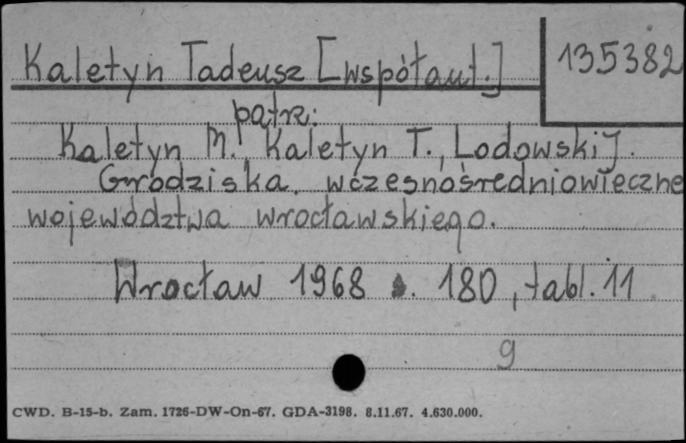 Kaletyn Tadeusz [współaut.] 135382
patrz:
Kaletyn M., Kaletyn T., Lodowski J.
Grodziska wczesnośredniowieczne
województwa wrocławskiego.
Wrocław 1968 s. 180, tabl. 11
g
CWD. B-15-b. Zam. 1726-DW-On-67. GDA-3198. 8.11.67. 4.630.000.